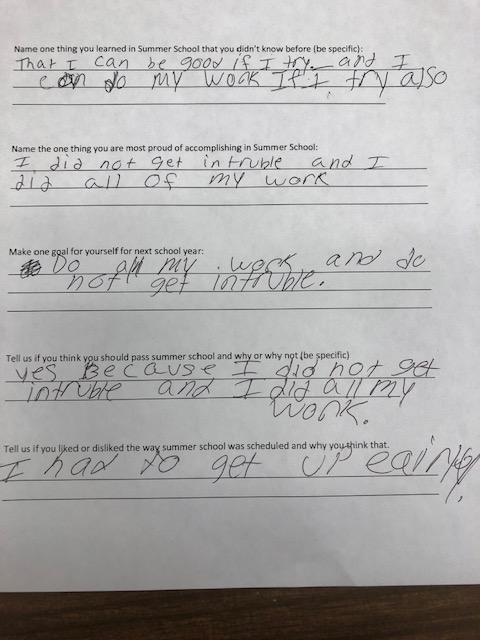 Name one thing you learned in Summer School that you didn't know before (be specific):
That I can be good if I try. and I
can do my work If I try also
Name the one thing you are most proud of accomplishing in Summer School:
I did not get in truble and I
did all of my work
Make one goal for yourself for next school year:
Do all my work and do
not get intruble.
Tell us if you think you should pass summer school and why or why not (be specific)
yes Because I did not get
intruble and I did all my
work.
Tell us if you liked or disliked the way summer school was scheduled and why you think that.
I had to get up